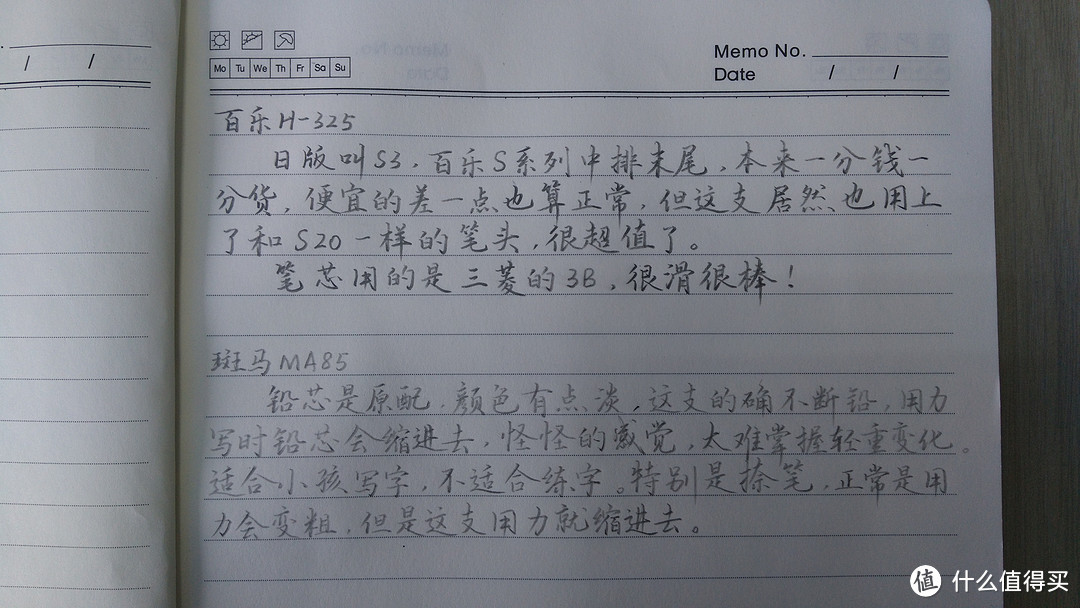 Mo Tu We Th Fr Sa Su
Memo No.
Date / /
/ /
百乐H-325
日版叫S3，百乐S系列中排末尾，本来一分钱一
分货，便宜的差一点也算正常，但这支居然也用上
了和S20一样的笔头，很超值了。
笔芯用的是三菱的3B，很滑很棒！
斑马MA85
铅芯是原配，颜色有点淡，这支的确不断铅，用力
写时铅芯会缩进去，怪怪的感觉，太难掌握轻重变化。
适合小孩写字，不适合练字。特别是捺笔，正常是用
力会变粗，但是这支用力就缩进去。
值 什么值得买